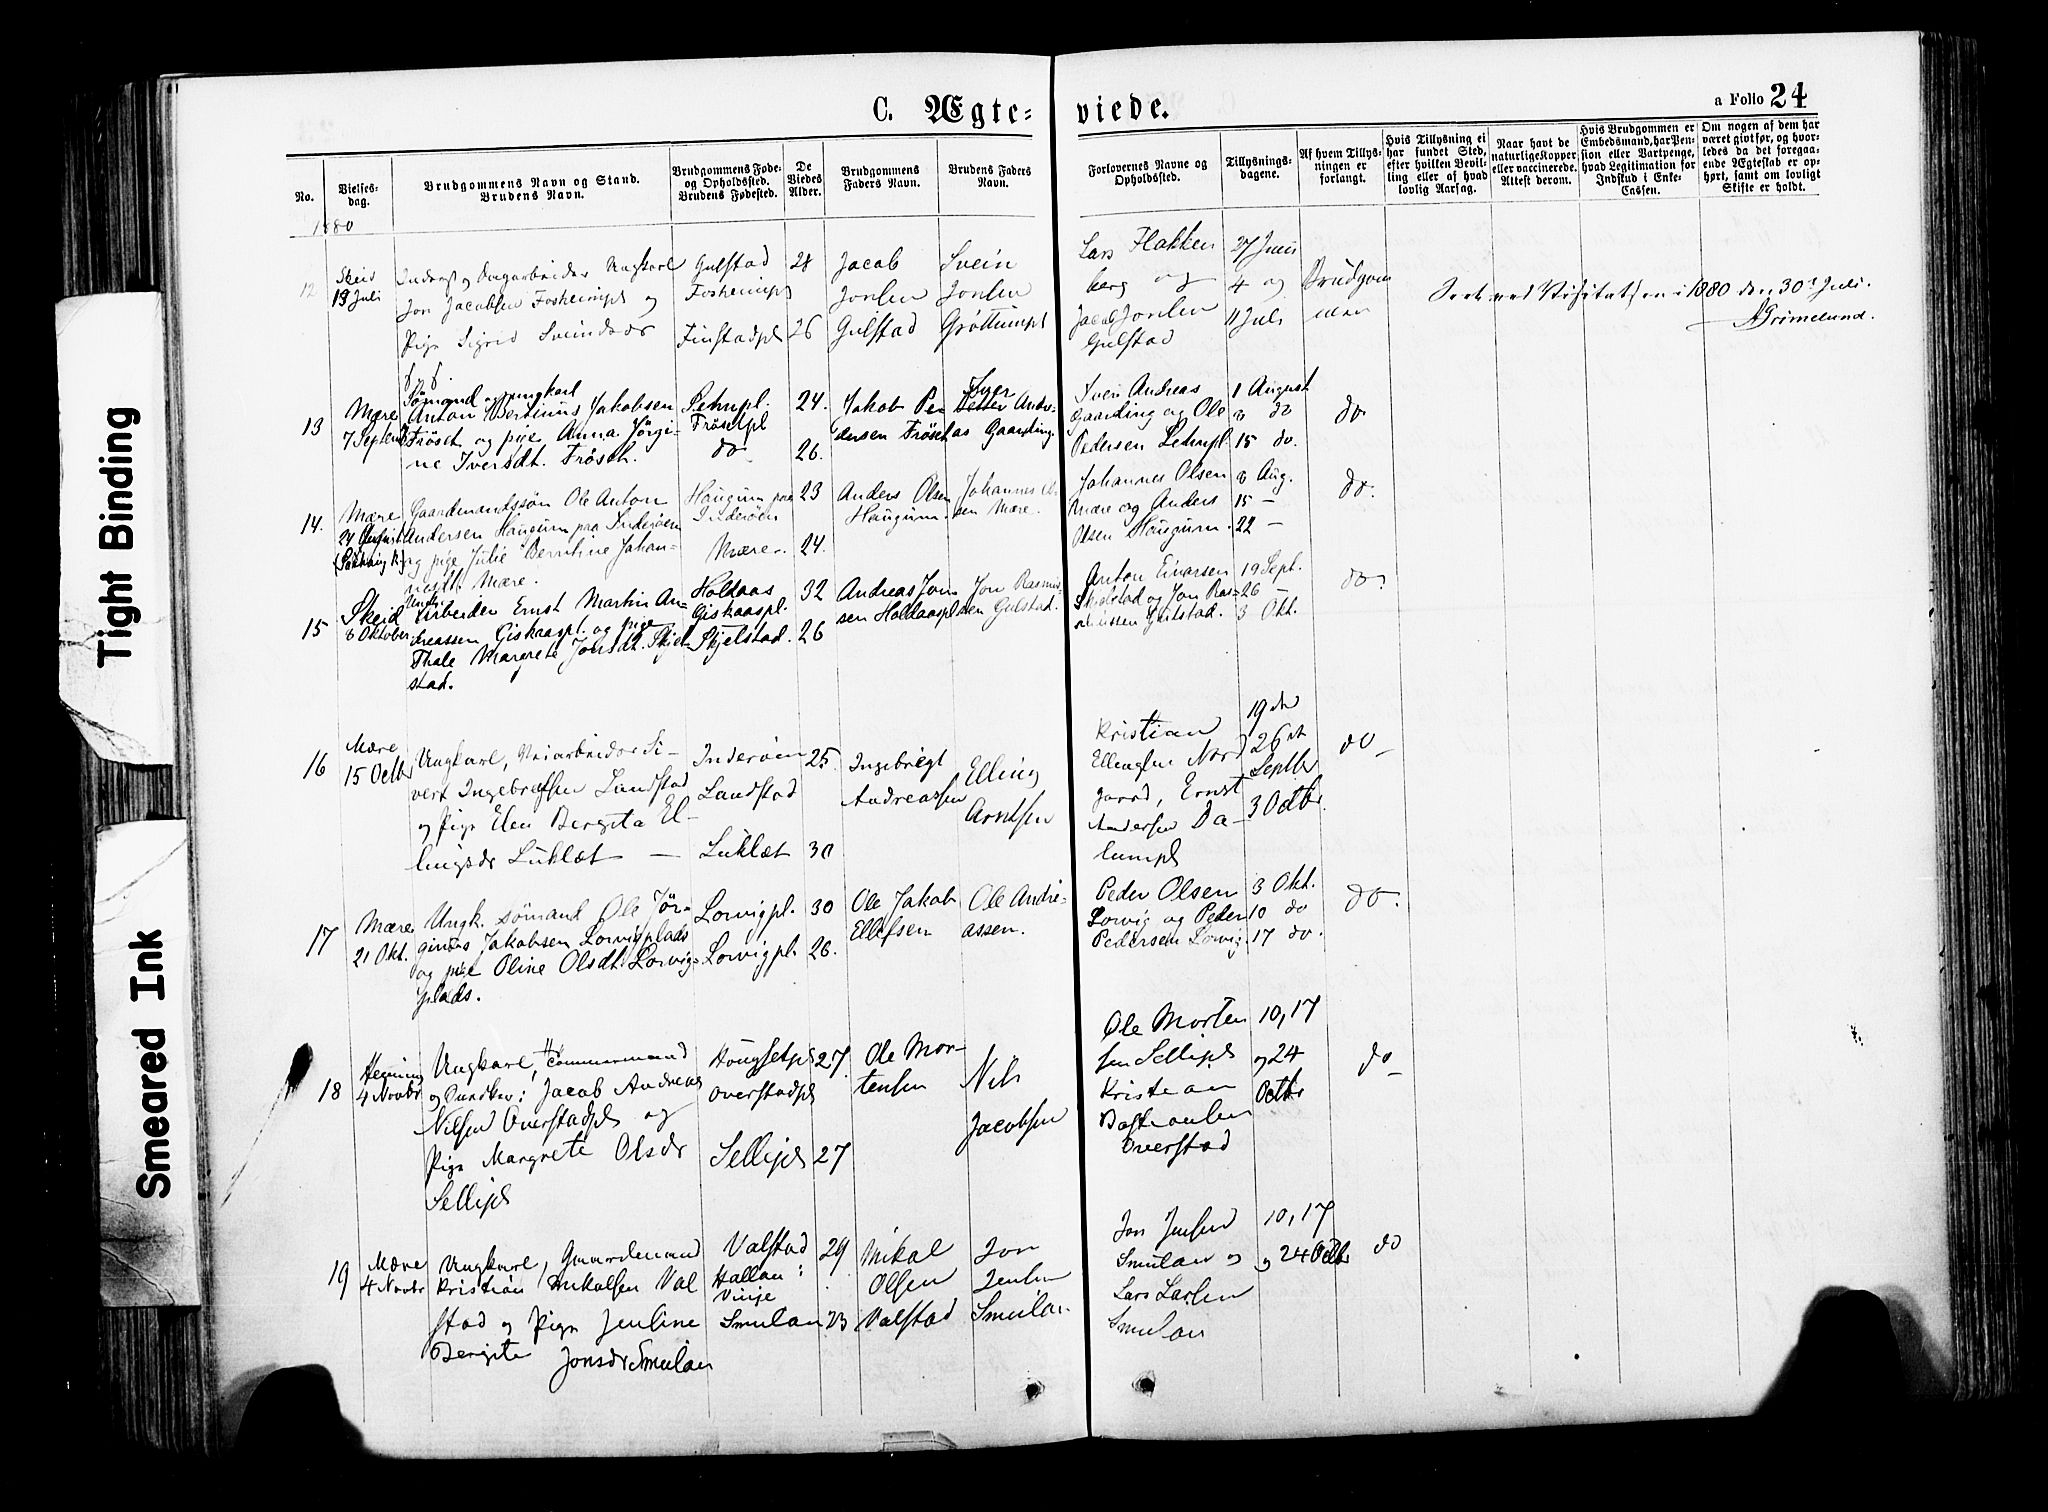 C. Ægte-
viede.
a Folio 24
No.
Vielses-
dag.
Brudgommens Navn og Stand.
Brudens Navn.
Brudgommens Føde-
og Opholdssted.
Brudens Fødested.
De
Viedes
Alder.
Brudgommens
Faders Navn.
Brudens Faders
Navn.
Forlovernes Navne og
Opholdssted.
Tillysnings-
dagene.
Af hvem Tillys-
ningen er
forlangt.
Hvis Tillysning ei
har fundet Sted,
efter hvilken Bevil-
ling eller af hvad
lovlig Aarsag.
Naar havt de
naturlige Kopper
eller vaccinerede.
Attest derom.
Hvis Brudgommen er
Embedsmand, har Pen-
sion eller Vartpenge,
hvad Legitimation for
Indskud i Enke-
Cassen.
Om nogen af dem har
været givt før, og hvor-
ledes da det foregaa-
ende Ægteskab er op-
hørt, samt om lovligt
Skifte er holdt.
1880
12
Skeid
13 Juli
Inderst og Dagarbeider Ungkarl
Jon Jacobsen Fosheimpl og
Pige Sigrid Sveinsdr
Gulstad
Fosheimpl
Finstadpl
28
26
Jacob
Jonsen
Gulstad
Svein
Jonsen
Grøttumpl
Lars Flakken
berg og
Jacob Jonsen
Gulstad
27 Juni
4 og
11 Juli
Brudgom
men
Seet ved Visitatsen i 1880 den 30t Juli.
AGrimelund.
13
Mære
7 Septemb
Sømand og ungkarl
Anton Bertinus Jakobsen
Frøset og pige Anna Jørgi-
ne Iversdt. Frøset.
Lehnpl.
Frøsetpl
do
24.
26.
Jakob Pe
dersen Frøset
Iver
Andre-
as Gaarding.
Sven Andreas
Gaarding og Ole
Pedersen Lehnpl.
1 August
8 do
15 do.
do
14.
Mære
27 August
(Sakshaug K)
Gaardmandssøn Ole Anton
Andersen Haugum paa Inderøen
og pige Julie Berntine Johan-
nesdt. Mære.
Haugum paa
Inderøen
Mære.
23
24.
Anders Olsen
Haugum.
Johannes Ol-
sen Mære.
Johannes Olsen
Mære og Anders
Olsen Haugum.
8 Aug.
15 —
22 —
do.
15
Skeid
8 Oktober
Ungk.
Arbeider Ernst Martin An-
dreassen Giskaaspl. og pige
Thale Margrete Jonsdt. Skjel-
stad.
Holdaas
Giskaaspl.
Skjelstad.
32
26
Andreas Jon
sen Holdaaspl
Jon Rasmus
sen Gulstad.
Anton Einarsen
Skjelstad og Jon Ras-
mussen Gulstad.
19 Sept.
26
3 Okt.
do.
16
Mære
15 Octbr
Ungkarl, Veiarbeider Si-
vert Ingebretsen Landstad
og Pige Elen Bergita El-
lingsdr Luklæt —
Inderøen
Landstad
Luklæt
25
30
Ingebrigt
Andreassen
Elling
Arntsen
Kristian
Ellingsen Nord
gaard, Ernst
Andersen Da-
lumpl
19de
26de
Septbr
3 Octbr.
do —
17
Mære
21 Okt.
Ungk. sømand Ole Jør-
ginus Jakobsen Lorvigplads
og pige Oline Olsdt. Lorvig-
plads.
Lorvigpl.
Lorvigpl.
30
26.
Ole Jakob
Ellefsen
Ole Andre-
assen.
Peder Olsen
Lorvig og Peder
Pedersen Lorvig
3 Okt.
10 do
17 do.
do.
18
Henning
4 Novbr
Ungkarl, Tømmermand
og Jacob Andreas
Nilsen Overstadpl og
Pige Margrete Olsdr
Sellipl
Hougsetpl
Overstadpl
Sellipl
27
27
Ole Mor-
tensen
Nils
Jacobsen
Ole Morten
sen Sellipl
Kristian
Bastiansen
Overstad
10, 17
og 24
Octbr
do —
19
Mære
4 Novbr
Ungkarl, Gaardmand
Kristian Mikalsen Val
stad og Pige Jensine
Bergite Jonsdr Smulan
Valstad
Hallan i
Vinje
Smulan
29
23
Mikal
Olsen
Valstad
Jon
Jensen
Smulan
Jon Jensen
Smulan og
Lars Larsen
Smulan
10, 17
og 24 Octbr
do
Tight Binding
Smeared Ink